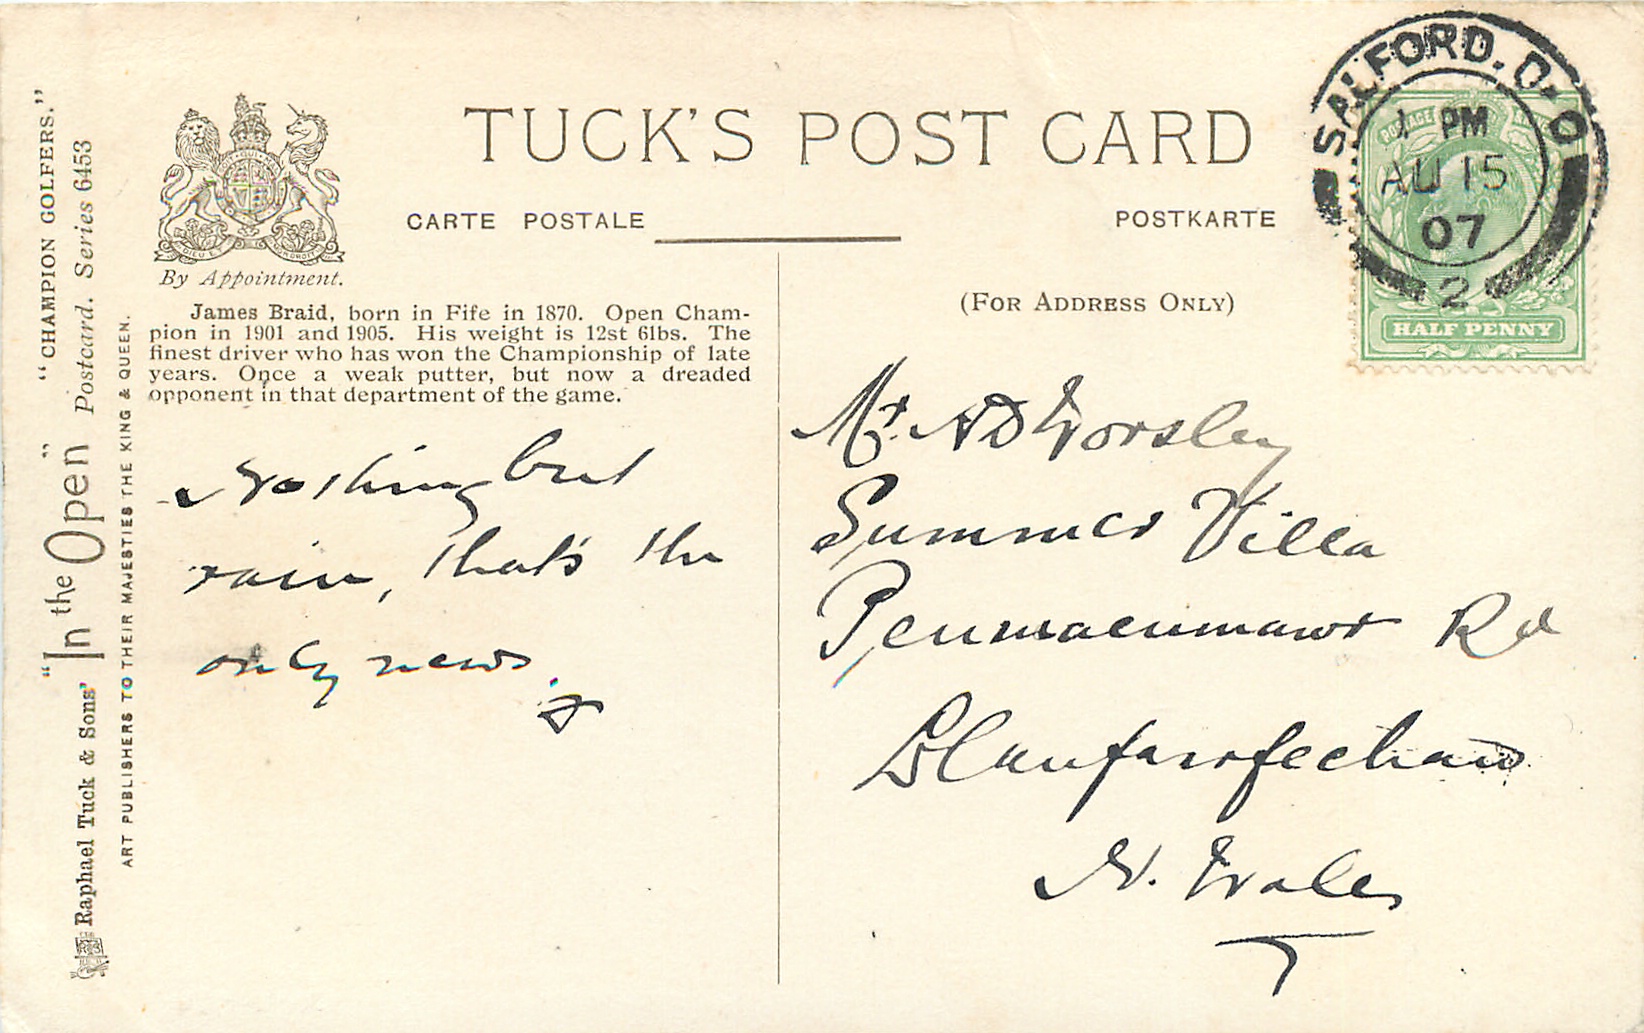 TUCK'S POST CARD
CARTE POSTALE
POSTKARTE
By Appointment.
(FOR ADDRESS ONLY)
James Braid, born in Fife in 1870. Open Cham-
pion in 1901 and 1905. His weight is 12st 6lbs. The
finest driver who has won the Championship of late
years. Once a weak putter, but now a dreaded
opponent in that department of the game.
Nothing but
rain, that's the
only news.
Mr. A D Worsley
Summer Villa
Penmaenmawr Rd
Llanfairfechan
N. Wales
SALFORD. D. O
1 PM
AU 15
07
2
POSTAGE
HALF PENNY
"CHAMPION GOLFERS."
"In the Open" Postcard. Series 6453
Raphael Tuck & Sons'
ART PUBLISHERS TO THEIR MAJESTIES THE KING & QUEEN.